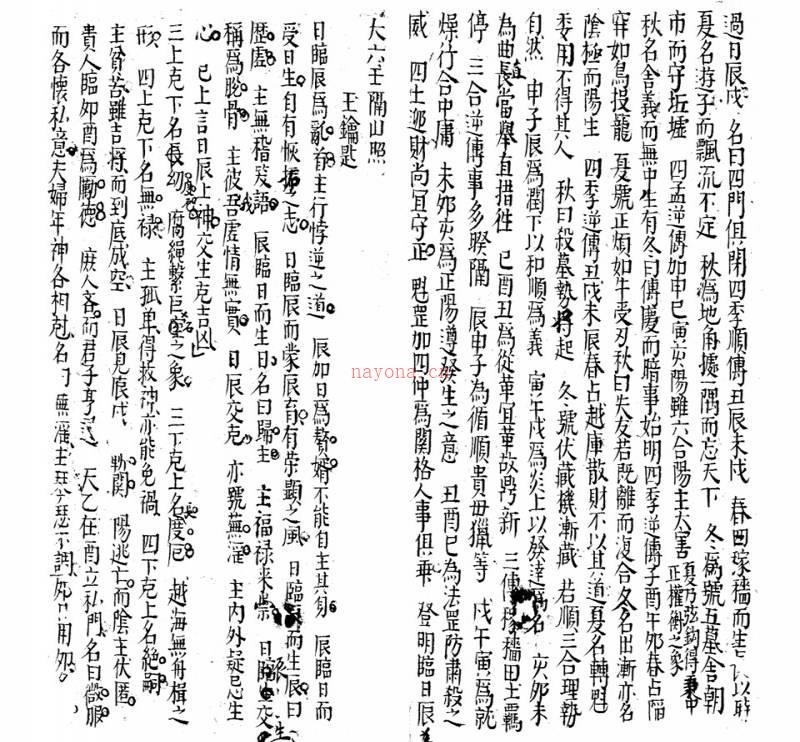 過日辰戌名曰四門俱閉四季順傳丑辰未戌春曰稼穡而生以時
夏名遊子而飄流不定秋為地角據一隅而忘天下冬為號五墓舍朝
市而守坵墟四孟逆傳加申巳寅亥陽雖六合陽主太害夏乃弦鈎得秉中正權衡之象
秋名舍義而無中生有冬曰傳慶而暗事始明四季逆傳子酉午卯春占陷
穽如鳥投籠夏號正煩如牛受刃秋曰失友若既離而復合冬名出漸亦名
陰極而陽生四季逆傳丑戌未辰春占越庫散財不以其道夏名轉魁
委用不得其人秋曰殺墓勢將起冬號伏藏機漸藏若順三合理勢
自然申子辰爲潤下以和順爲義寅午戌爲炎上以發達爲名亥卯未
為曲直長當舉直措徃巳酉丑爲從革宜革故鼎新三傳稼穡田土覊
停三合逆傳事多暌隔辰申子為循順貴毋獵等戌午寅爲就
燥行合中庸未夘亥爲正陽遵發生之意丑酉巳為法罡防肅殺之
威四土逆財尚宜守正魁罡加四仲爲関格人事俱乖登明臨日辰
大六壬隔山照
王鑰匙
日臨辰爲亂首主行悖逆之道辰加日爲贅婿不能自主其身辰臨日而
受日生自有恢拓之志日臨辰而蒙辰育有荣顯之風日臨而生辰曰
歷虛主無稽笑語辰臨日而生日名曰歸主主福禄来崇日臨交
稱爲脫骨主彼吾虛情無實日辰交克亦號蕪滛主內外疑忌生
心已上言日辰上神交生克吉凶
三上克下名長幼腐繩繫巨之象三下克上名度厄越海無舟楫之
形四上克下名無禄主孤单得救神亦能免禍四下克上名絶嗣
主貧苦雖吉將而到底成空日辰見辰戌陽逃亡而陰主伏匿
貴人臨卯酉爲勵德庶人吝而君子亨天乙在酉立私門名曰微服
而各懷私意夫婦年神各相尅名曰無滛主琴瑟不調
nayona.cn